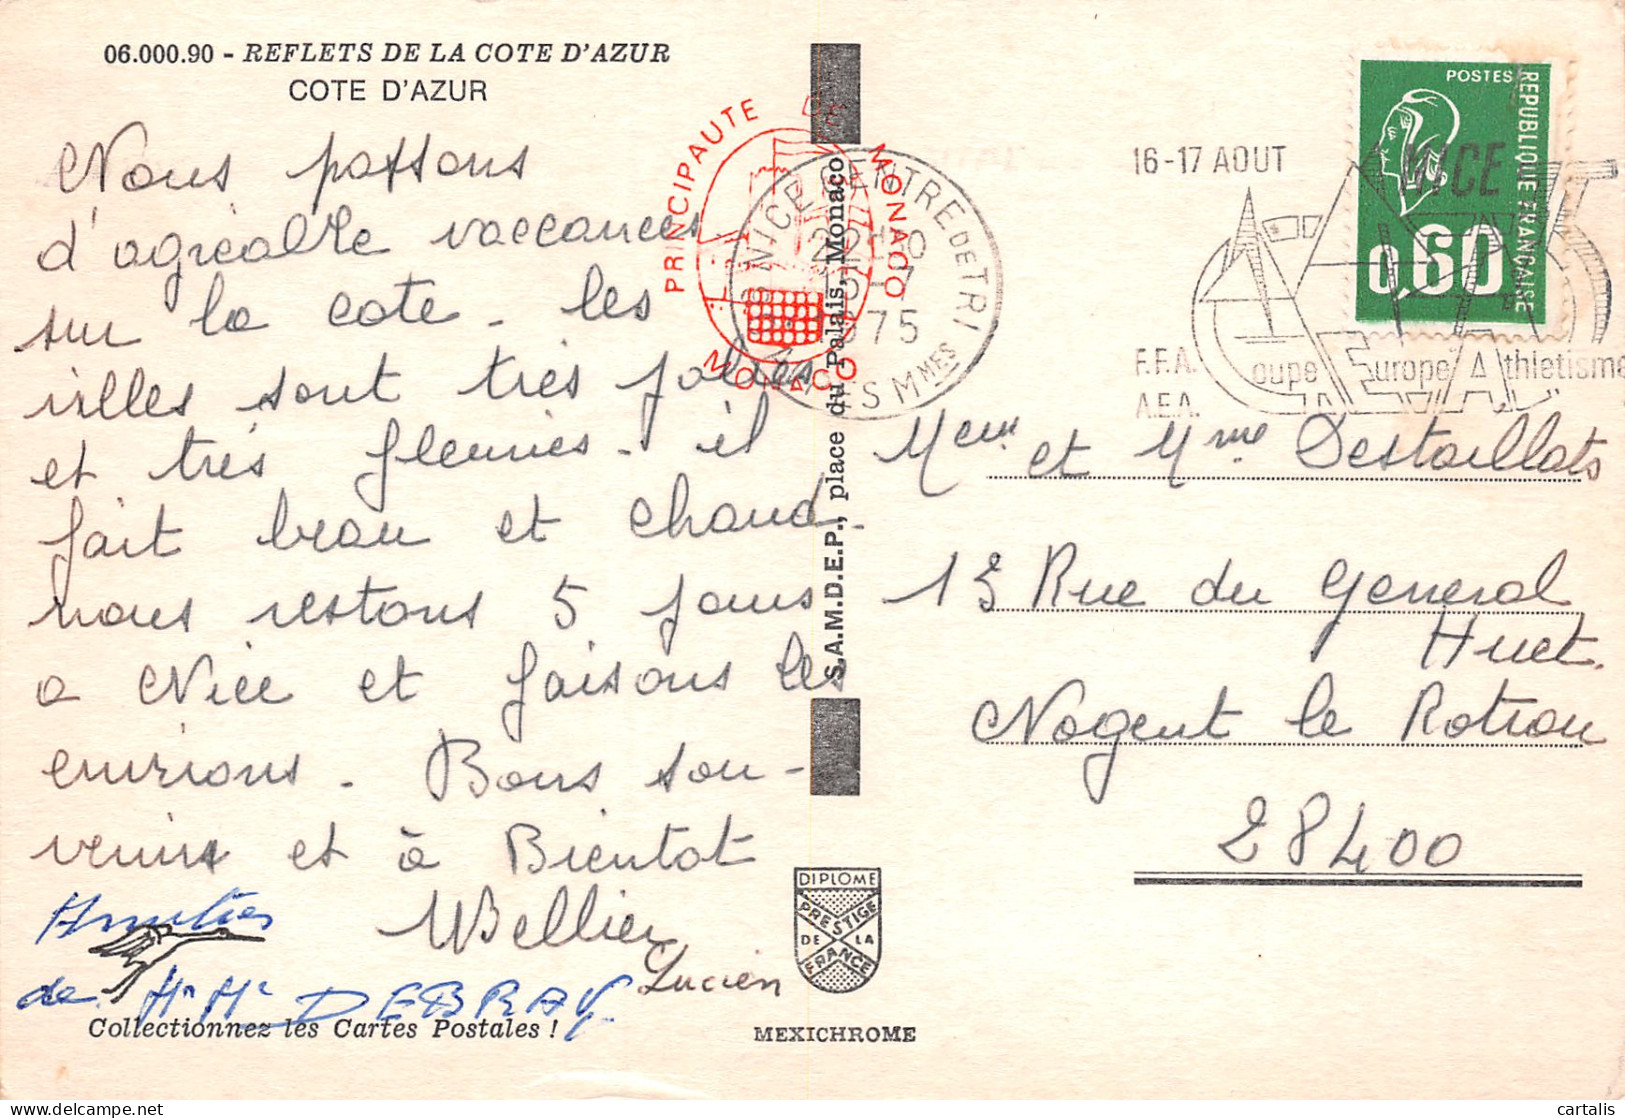 06.000.90 - REFLETS DE LA COTE D'AZUR
COTE D'AZUR
Nous passons
d'agréable vaccances
sur la cote. les
villes sont très jolies
et très fleuries. il
fait beau et chaud.
nous restons 5 jours
a Nice et faisons les
environs. Bons sou-
venirs et à Bientot
WBellier
Lucien
Amities
de Mr Me DEBRAY.
Collectionnez les Cartes Postales !
PRINCIPAUTE DE MONACO
MONACO
S.A.M.D.E.P., place du Palais, Monaco
NICE CENTRE DE TRI
1975
ALPES MMES
DIPLOME
PRESTIGE
DE LA
FRANCE
MEXICHROME
POSTES
REPUBLIQUE FRANÇAISE
0,60
16-17 AOUT
NICE
F.F.A.
A.E.A.
Coupe Europe Athletisme
Meur et Mme Destaillats
13 Rue du General
Huet.
Nogent le Rotrou
28400
cartalis